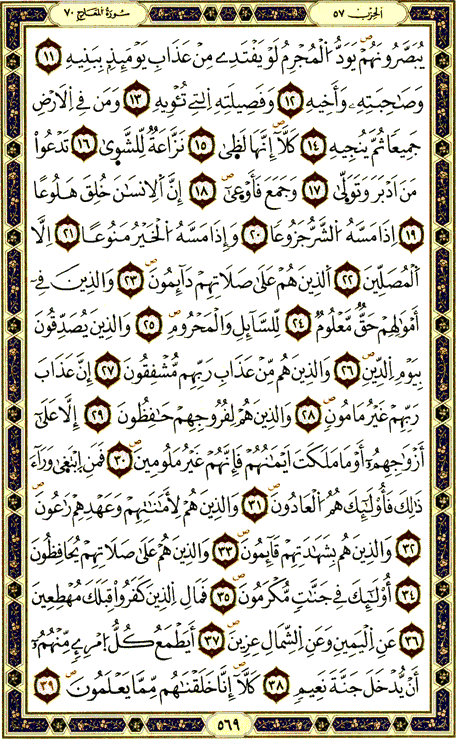 الحزب ٥٧
سورة المعارج ٧٠
يُبَصَّرُونَهُمْ يَوَدُّ اُلْمُجْرِمُ لَوْ يَفْتَدِے مِنْ عَذَابِ يَوْمَئِذِۢ بِبَنِيهِ ١١
وَصَٰحِبَتِهِۦ وَأَخِيهِ ١٢ وَفَصِيلَتِهِ اِلتِے تُـْٔوِيهِ ١٣ وَمَن فِے اِلَارْضِ
جَمِيعاٗ ثُمَّ يُنجِيهِ ١٤ كَلَّآ إِنَّهَا لَظ۪يٰ ١٥ نَزَّاعَةٞ لِّلشَّو۪يٰ ١٦ تَدْعُواْ
مَنَ اَدْبَرَ وَتَوَلّ۪يٰ ١٧ وَجَمَعَ فَأَوْع۪يٰٓ ١٨ إِنَّ اَلِانسَٰنَ خُلِقَ هَلُوعاً
١٩ اِذَا مَسَّهُ اُلشَّرُّ جَزُوعاٗ ٢٠ وَإِذَا مَسَّهُ اُلْخَيْرُ مَنُوعاً ٢١ اِلَّا
اَلْمُصَلِّينَ ٢٢ اَلذِينَ هُمْ عَلَىٰ صَلَاتِهِمْ دَآئِمُونَ ٢٣ وَالذِينَ فِےٓ
أَمْوَٰلِهِمْ حَقّٞ مَّعْلُومٞ ٢٤ لِّلسَّآئِلِ وَالْمَحْرُومِ ٢٥ وَالذِينَ يُصَدِّقُونَ
بِيَوْمِ اِلدِّينِ ٢٦ وَالذِينَ هُم مِّنْ عَذَابِ رَبِّهِم مُّشْفِقُونَ ٢٧ إِنَّ عَذَابَ
رَبِّهِمْ غَيْرُ مَامُونٖ ٢٨ وَالذِينَ هُمْ لِفُرُوجِهِمْ حَٰفِظُونَ ٢٩ إِلَّا عَلَىٰٓ
أَزْوَٰجِهِمُۥٓ أَوْ مَا مَلَكَتَ اَيْمَٰنُهُمْ فَإِنَّهُمْ غَيْرُ مَلُومِينَ ٣٠ فَمَنِ اِبْتَغ۪يٰ وَرَآءَ
ذَٰلِكَ فَأُوْلَٰٓئِكَ هُمُ اُلْعَادُونَ ٣١ وَالذِينَ هُمْ لِأَمَٰنَٰتِهِمْ وَعَهْدِهِمْ رَٰعُونَ
٣٢ وَالذِينَ هُم بِشَهَٰدَتِهِمْ قَآئِمُونَ ٣٣ وَالذِينَ هُمْ عَلَىٰ صَلَاتِهِمْ يُحَافِظُونَ
٣٤ أُوْلَٰٓئِكَ فِے جَنَّٰتٖ مُّكْرَمُونَ ٣٥ فَمَالِ اِلذِينَ كَفَرُواْ قِبَلَكَ مُهْطِعِينَ
٣٦ عَنِ اِلْيَمِينِ وَعَنِ اِلشِّمَالِ عِزِينَ ٣٧ أَيَطْمَعُ كُلُّ اُ۪مْرِےٕٖ مِّنْهُمُۥٓ
أَنْ يُّدْخَلَ جَنَّةَ نَعِيمٖ ٣٨ كَلَّآ إِنَّا خَلَقْنَٰهُم مِّمَّا يَعْلَمُونَ ٣٩
٥٦٩